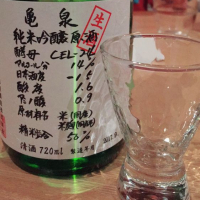 亀泉
生酒
純米吟醸原酒
酵母 CEL-24
アルコール分 14%
日本酒度 -
酸度 1.6
アミノ酸 0.9
原材料名 米(国産)
米麹(国産米)
精米歩合 50%
清酒 720ml